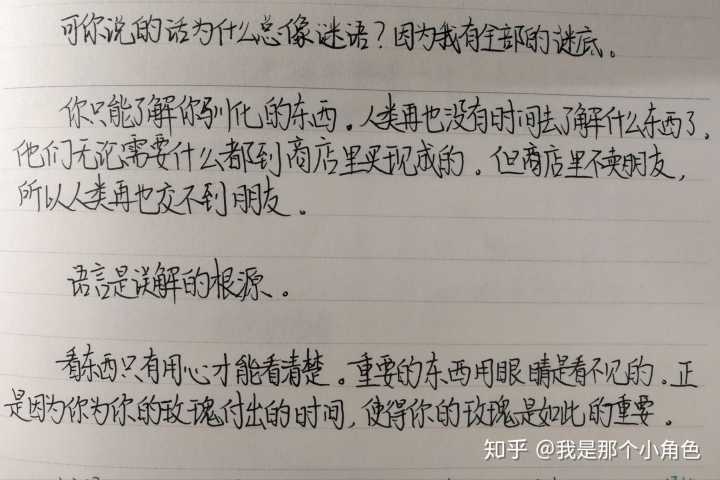 可你说的话为什么总像谜语？因为我有全部的谜底。
你只能了解你驯化的东西。人类再也没有时间去了解什么东西了，
他们无论需要什么都到商店里买现成的。但商店里不卖朋友，
所以人类再也交不到朋友。
语言是误解的根源。
看东西只有用心才能看清楚。重要的东西用眼睛是看不见的。正
是因为你为你的玫瑰付出的时间，使得你的玫瑰是如此的重要。
知乎 @我是那个小角色